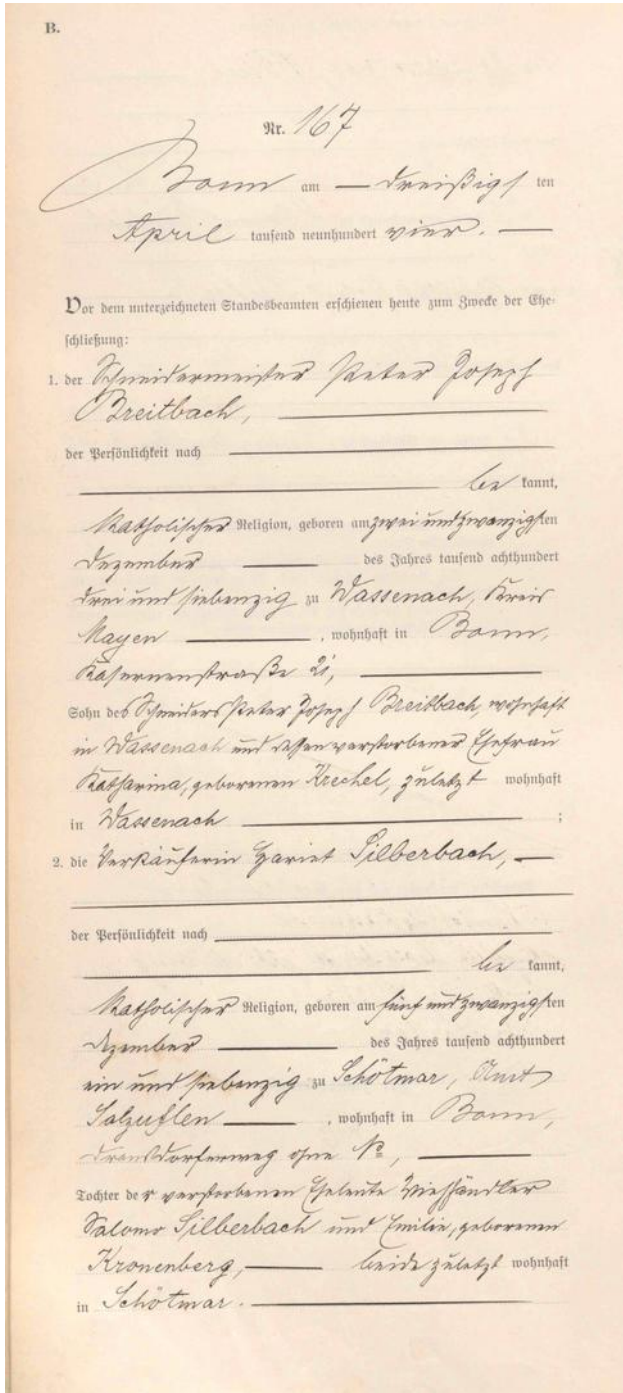 B.
Nr. 167
Bonn am — dreißigs ten
April tausend neunhundert vier. —
Vor dem unterzeichneten Standesbeamten erschienen heute zum Zwecke der Ehe-
schließung:
1. der Schneidermeister Peter Joseph
Breitbach,
der Persönlichkeit nach
be kannt,
katholischer Religion, geboren am zwei und zwanzigsten
Dezember des Jahres tausend achthundert
drei und siebenzig zu Wassenach, Kreis
Mayen , wohnhaft in Bonn,
Kasernenstraße
Sohn des Schneiders Peter Joseph Breitbach, wohnhaft
in Wassenach und dessen verstorbener Ehefrau
Katharina, geborenen Krechel, zuletzt wohnhaft
in Wassenach ;
2. die Verkäuferin Hariet Silberbach, —
der Persönlichkeit nach
be kannt,
katholischer Religion, geboren am fünf und zwanzigsten
Dezember des Jahres tausend achthundert
ein und siebenzig zu Schötmar, Amt
Salzuflen , wohnhaft in Bonn,
Dransdorferweg ohne No,
Tochter der verstorbenen Eheleute Viehhändler
Salomo Silberbach und Emilie, geborenen
Kronenberg, — beide zuletzt wohnhaft
in Schötmar.